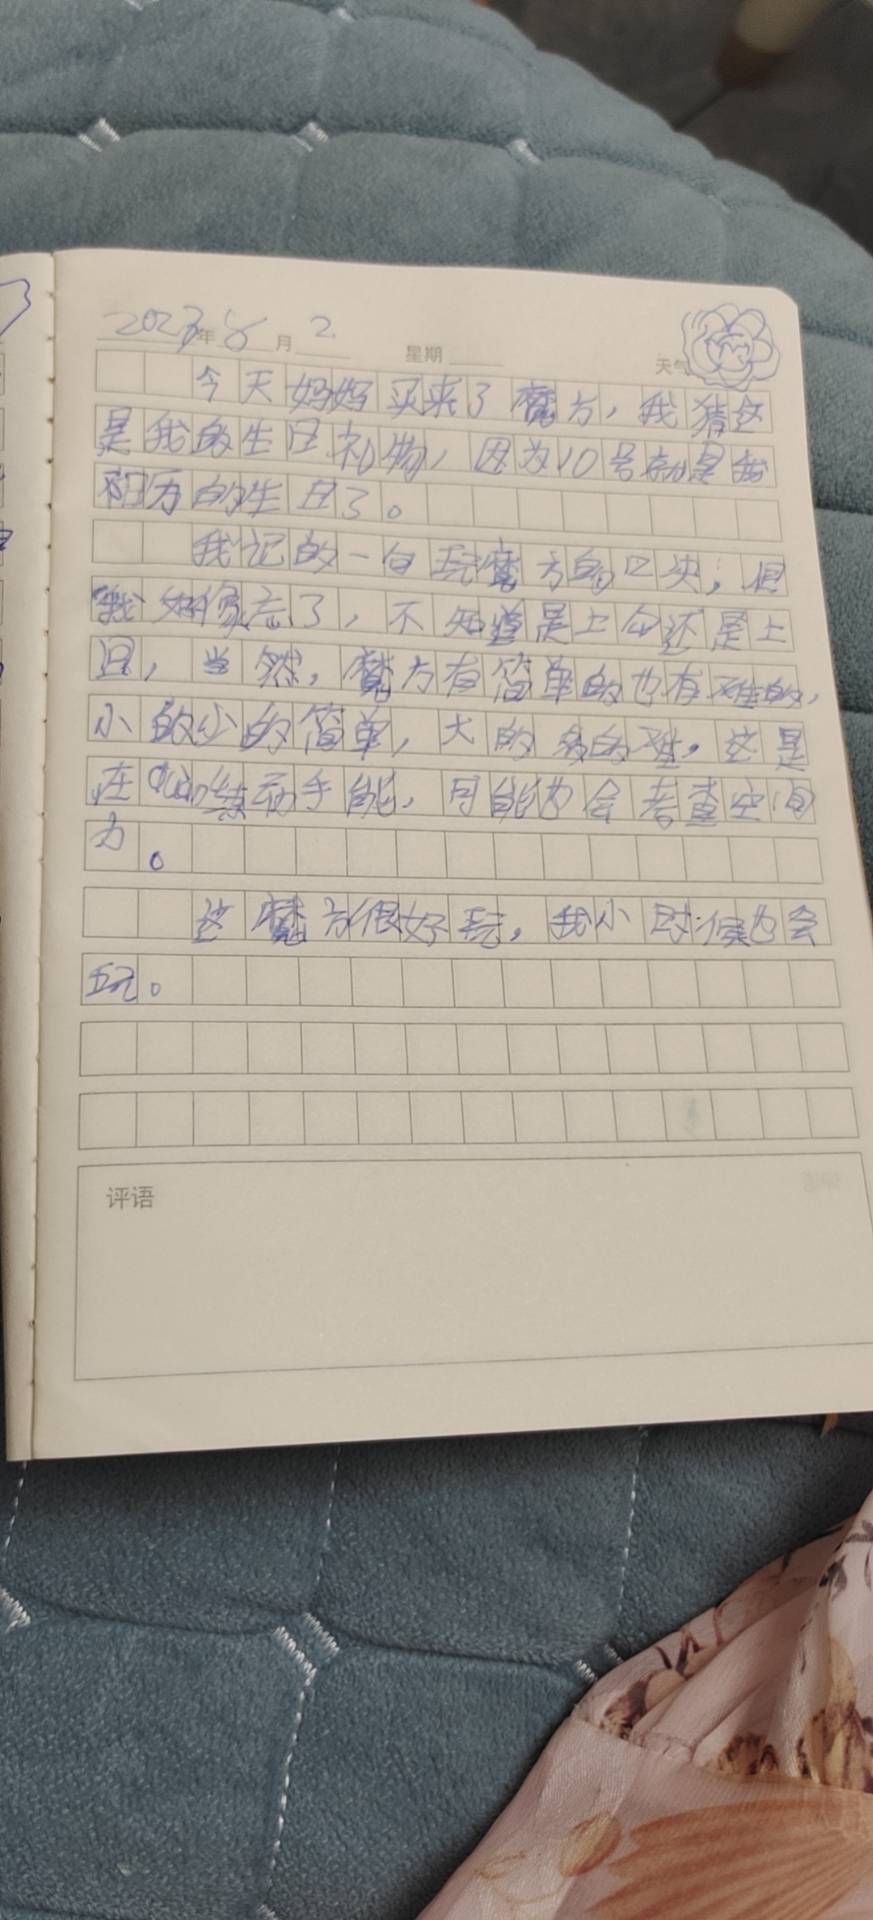 2023年8月2 星期 天气
今天妈妈买来了魔方，我猜这
是我的生日礼物，因为10号就是我
阳历的生日了。
我记的一句玩魔方的口决，但
我好像忘了，不知道是上勾还是上
回，当然，魔方有简单的也有难的，
小的少的简单，大的多的难。这是
在锻练动手能，可能也会考查空间
力。
这魔方很好玩，我小时候也会
玩。
评语